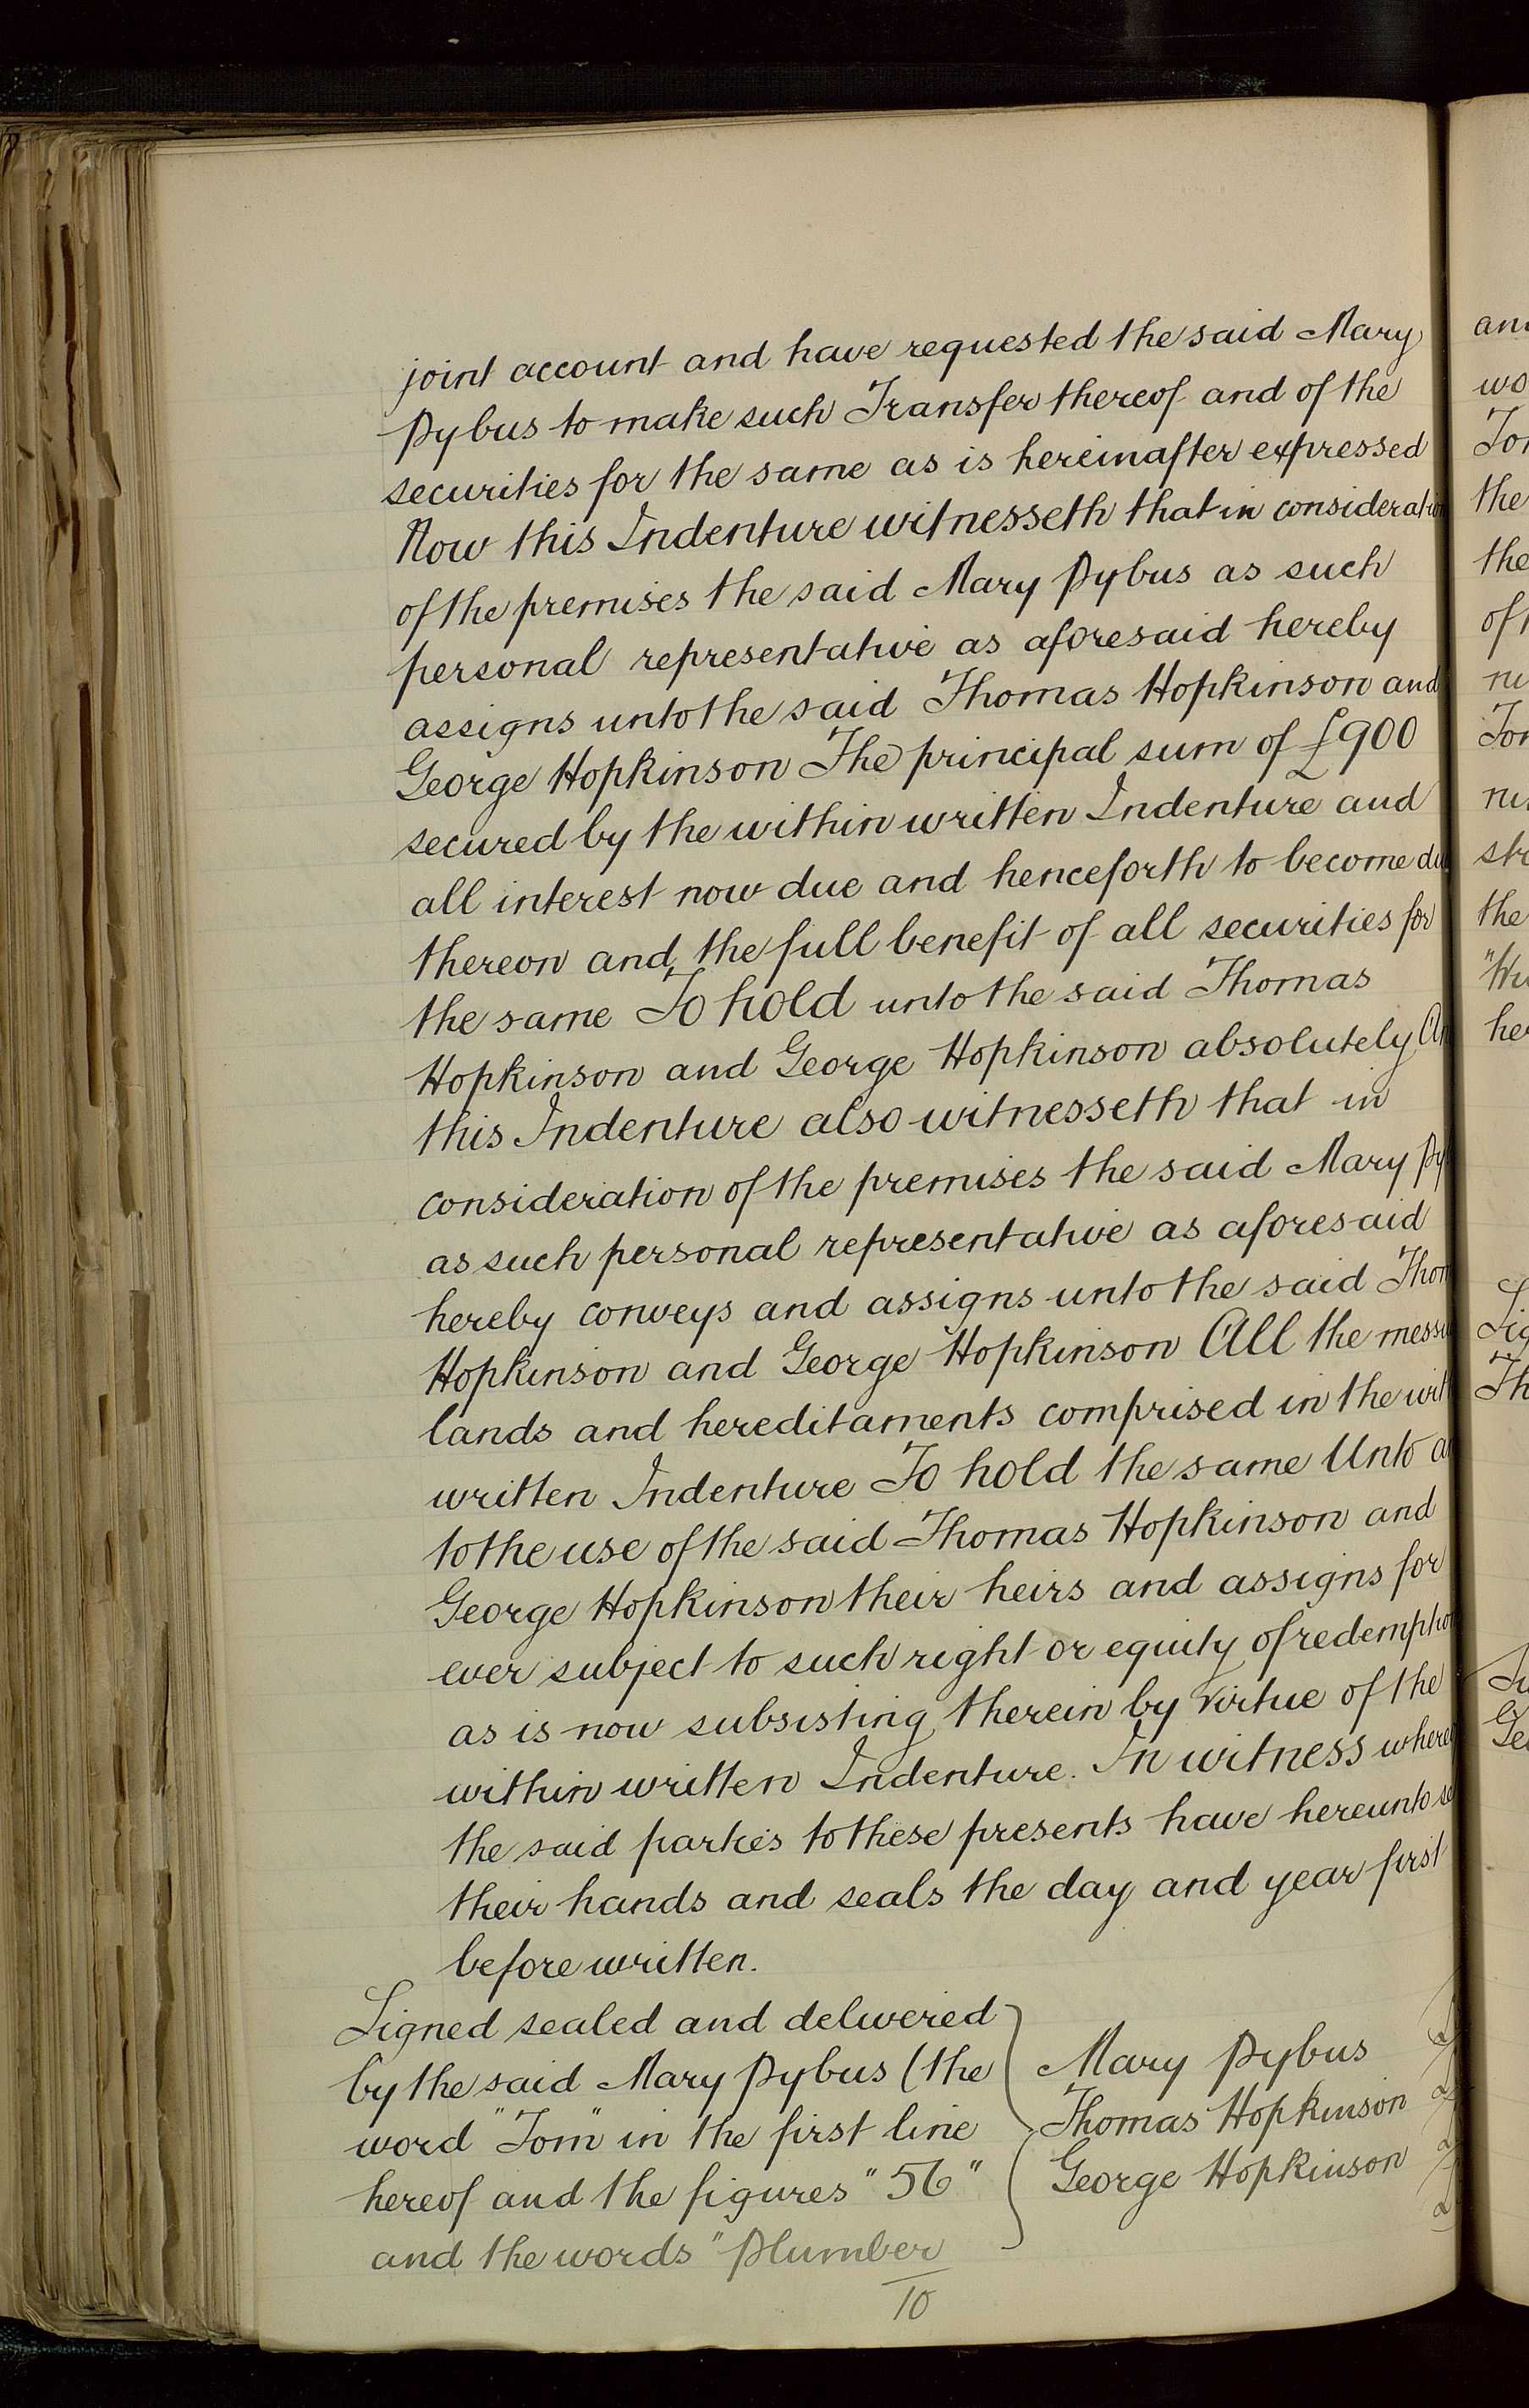 joint account and have requested the said Mary
Pybus to make such Transfer thereof and of the
securities for the same as is hereinafter expressed
Now this Indenture witnesseth that in consideration
of the premises the said Mary Pybus as such
personal representative as aforesaid hereby
assigns unto the said Thomas Hopkinson and
George Hopkinson The principal sum of £900
secured by the within written Indenture and
all interest now due and henceforth to become due
thereon and the full benefit of all securities for
the same To hold unto the said Thomas
Hopkinson and George Hopkinson absolutely An
this Indenture also witnesseth that in
consideration of the premises the said Mary Py
as such personal representative as aforesaid
hereby conveys and assigns unto the said Thom
Hopkinson and George Hopkinson All the messu
lands and hereditaments comprised in the wit
written Indenture To hold the same Unto a
to the use of the said Thomas Hopkinson and
George Hopkinson their heirs and assigns for
ever subject to such right or equity of redemption
as is now subsisting therein by virtue of the
within written Indenture. In witness where
the said parties to these presents have hereunto se
their hands and seals the day and year first
before written.
Signed sealed and delivered
by the said Mary Pybus (the
word "Tom" in the first line
hereof and the figures "56"
and the words "Plumber
Mary Pybus
Thomas Hopkinson
George Hopkinson
10
an
wo
Tom
the
the
of
nu
Tom
nu
str
the
"Wi
her
Sig
Th
Ge